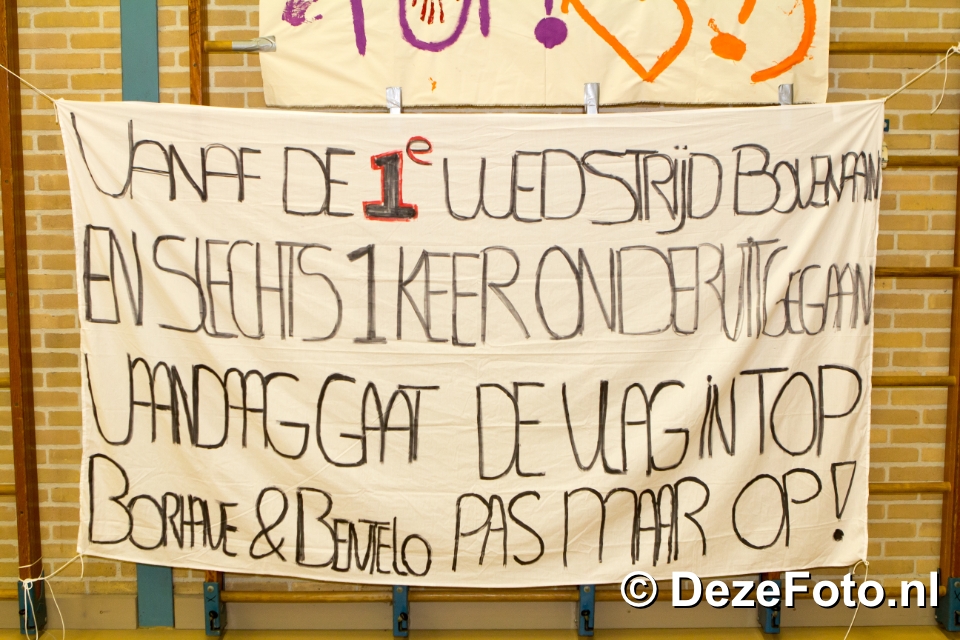 VANAF DE 1e WEDSTRIJD BOVENAAN
EN SLECHTS 1 KEER ONDERUITGEGAAN
VAANDAAG GAAT DE VLAG iN TOP
BORHAVE & BENTELO PAS MAAR OP!
© DezeFoto.nl